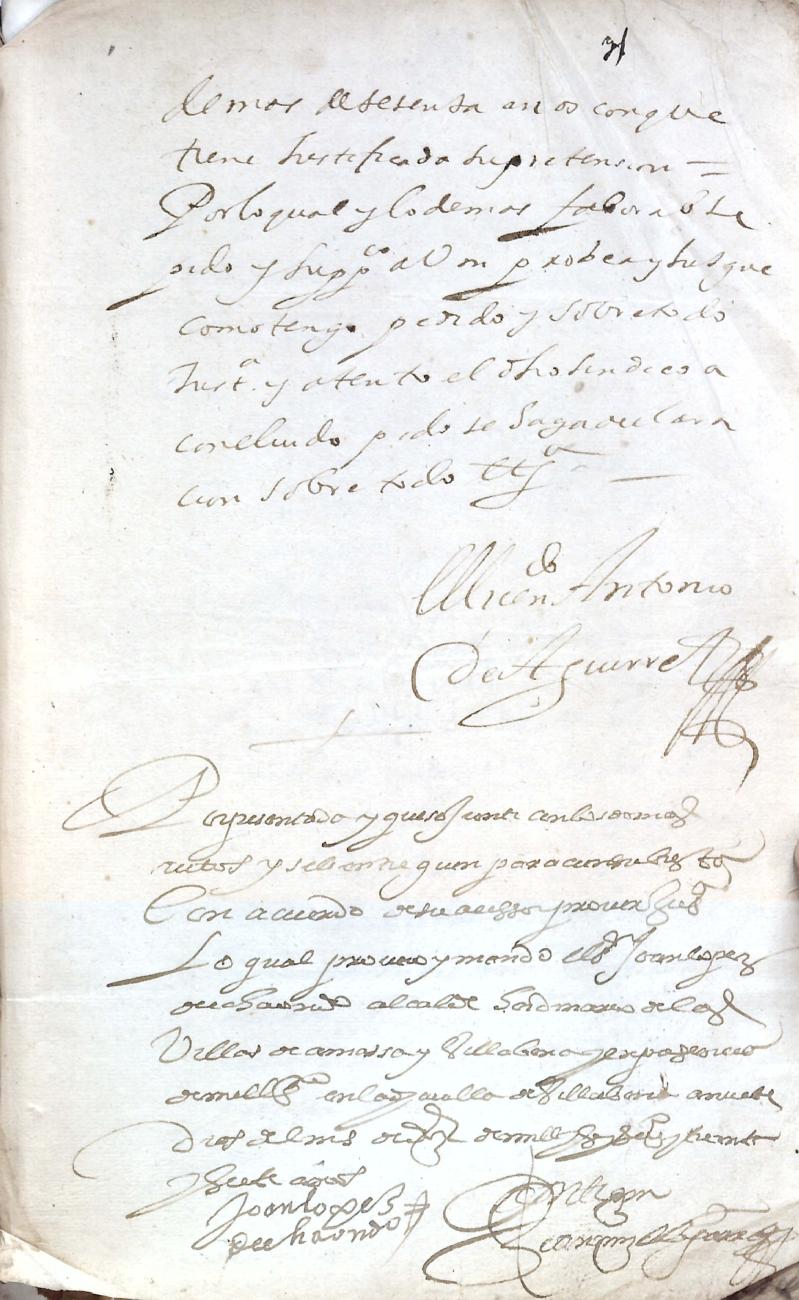 31
demas de sesenta anos con que
tiene Justificada su pretension =
Por lo qual y lo demas faborable
pido y supp.co a Vm probea y Jusgue
como tengo pedido y sobre todo
Just.a y atento el dho sindico a
concluido pido se haga declara
cion sobre todo ttJ.a
El licen.do Antonio
de Aguirre
Por presentada y que se Junte con los demas
autos y se le entreguen para con
Con acuerdo de su acessor proueer Jus.a
Lo qual proueyo y mando el s.r Joan lopez
de chaondo alcalde hordinario de las
Villas de amassa y Villabona
en la de Villabona a nuebe
Dias del mes de de mill y y treinta
y siete años
Joan lopez
de chaondo
Ante my